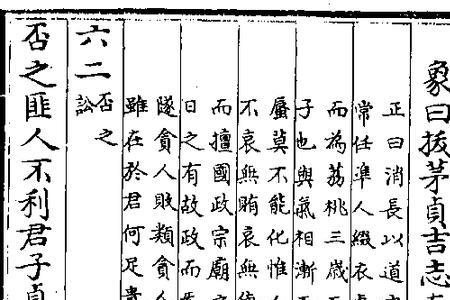 象曰拔茅貞吉志
正曰消長以道
常任準人綴衣
而為荔桃三歲
子也與氣相漸
蜃莫不能化惟人
不哀無賄哀無
而擅國政宗廟
日之有故政而
隧貪人敗類貪
雖在於君何足貴
六二否之訟
否之匪人不利君子貞